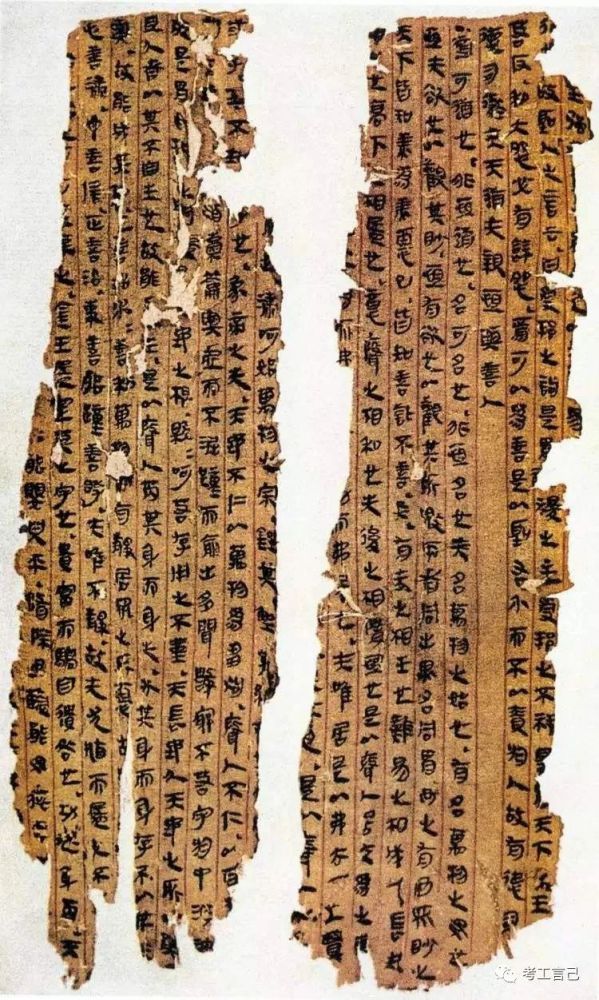 故聖人之言云曰受邦之詢是胃稷之主受邦之不祥是胃天下之王
若反和大怨必有餘怨焉可以為善是以聖右介而不以責於人故有德司
德司徹夫天道无親恒與善人
道可道也非恒道也名可名也非恒名也无名萬物之始也有名萬物之母也
恒无欲也以觀其眇恒有欲也以觀其所噭兩者同出異名同胃玄之有玄眾眇之
天下皆知美為美惡已皆知善訾不善矣有无之相生也難易之相成也長短
高下之相盈也意聲之相和也先後之相隋恒也是以聲人居无為之事行
而弗居也夫唯居是以弗去不上賢
是以聲人
潚呵始萬物之宗銼其
也象帝之先天地不仁以萬物為芻狗聲人不仁以百
猶橐籥輿虛而不淈蹱而俞出多聞數窮不若守於中浴神
胃玄地之根緜緜呵若存用之不堇天長地久天地之所以
且久者以其不自生也故能長生是以聲人芮其身而身先外其身而身存不以其
與故能成其私上善治水水善利萬物而有靜居眾之所惡故
善潚予善信正善治事善能蹱善時夫唯不靜故无尤揰而盈之不
之金玉盈室莫之守也貴富而驕自遺咎也功述身芮天
能嬰兒乎脩除玄藍能毋疵
考工言己